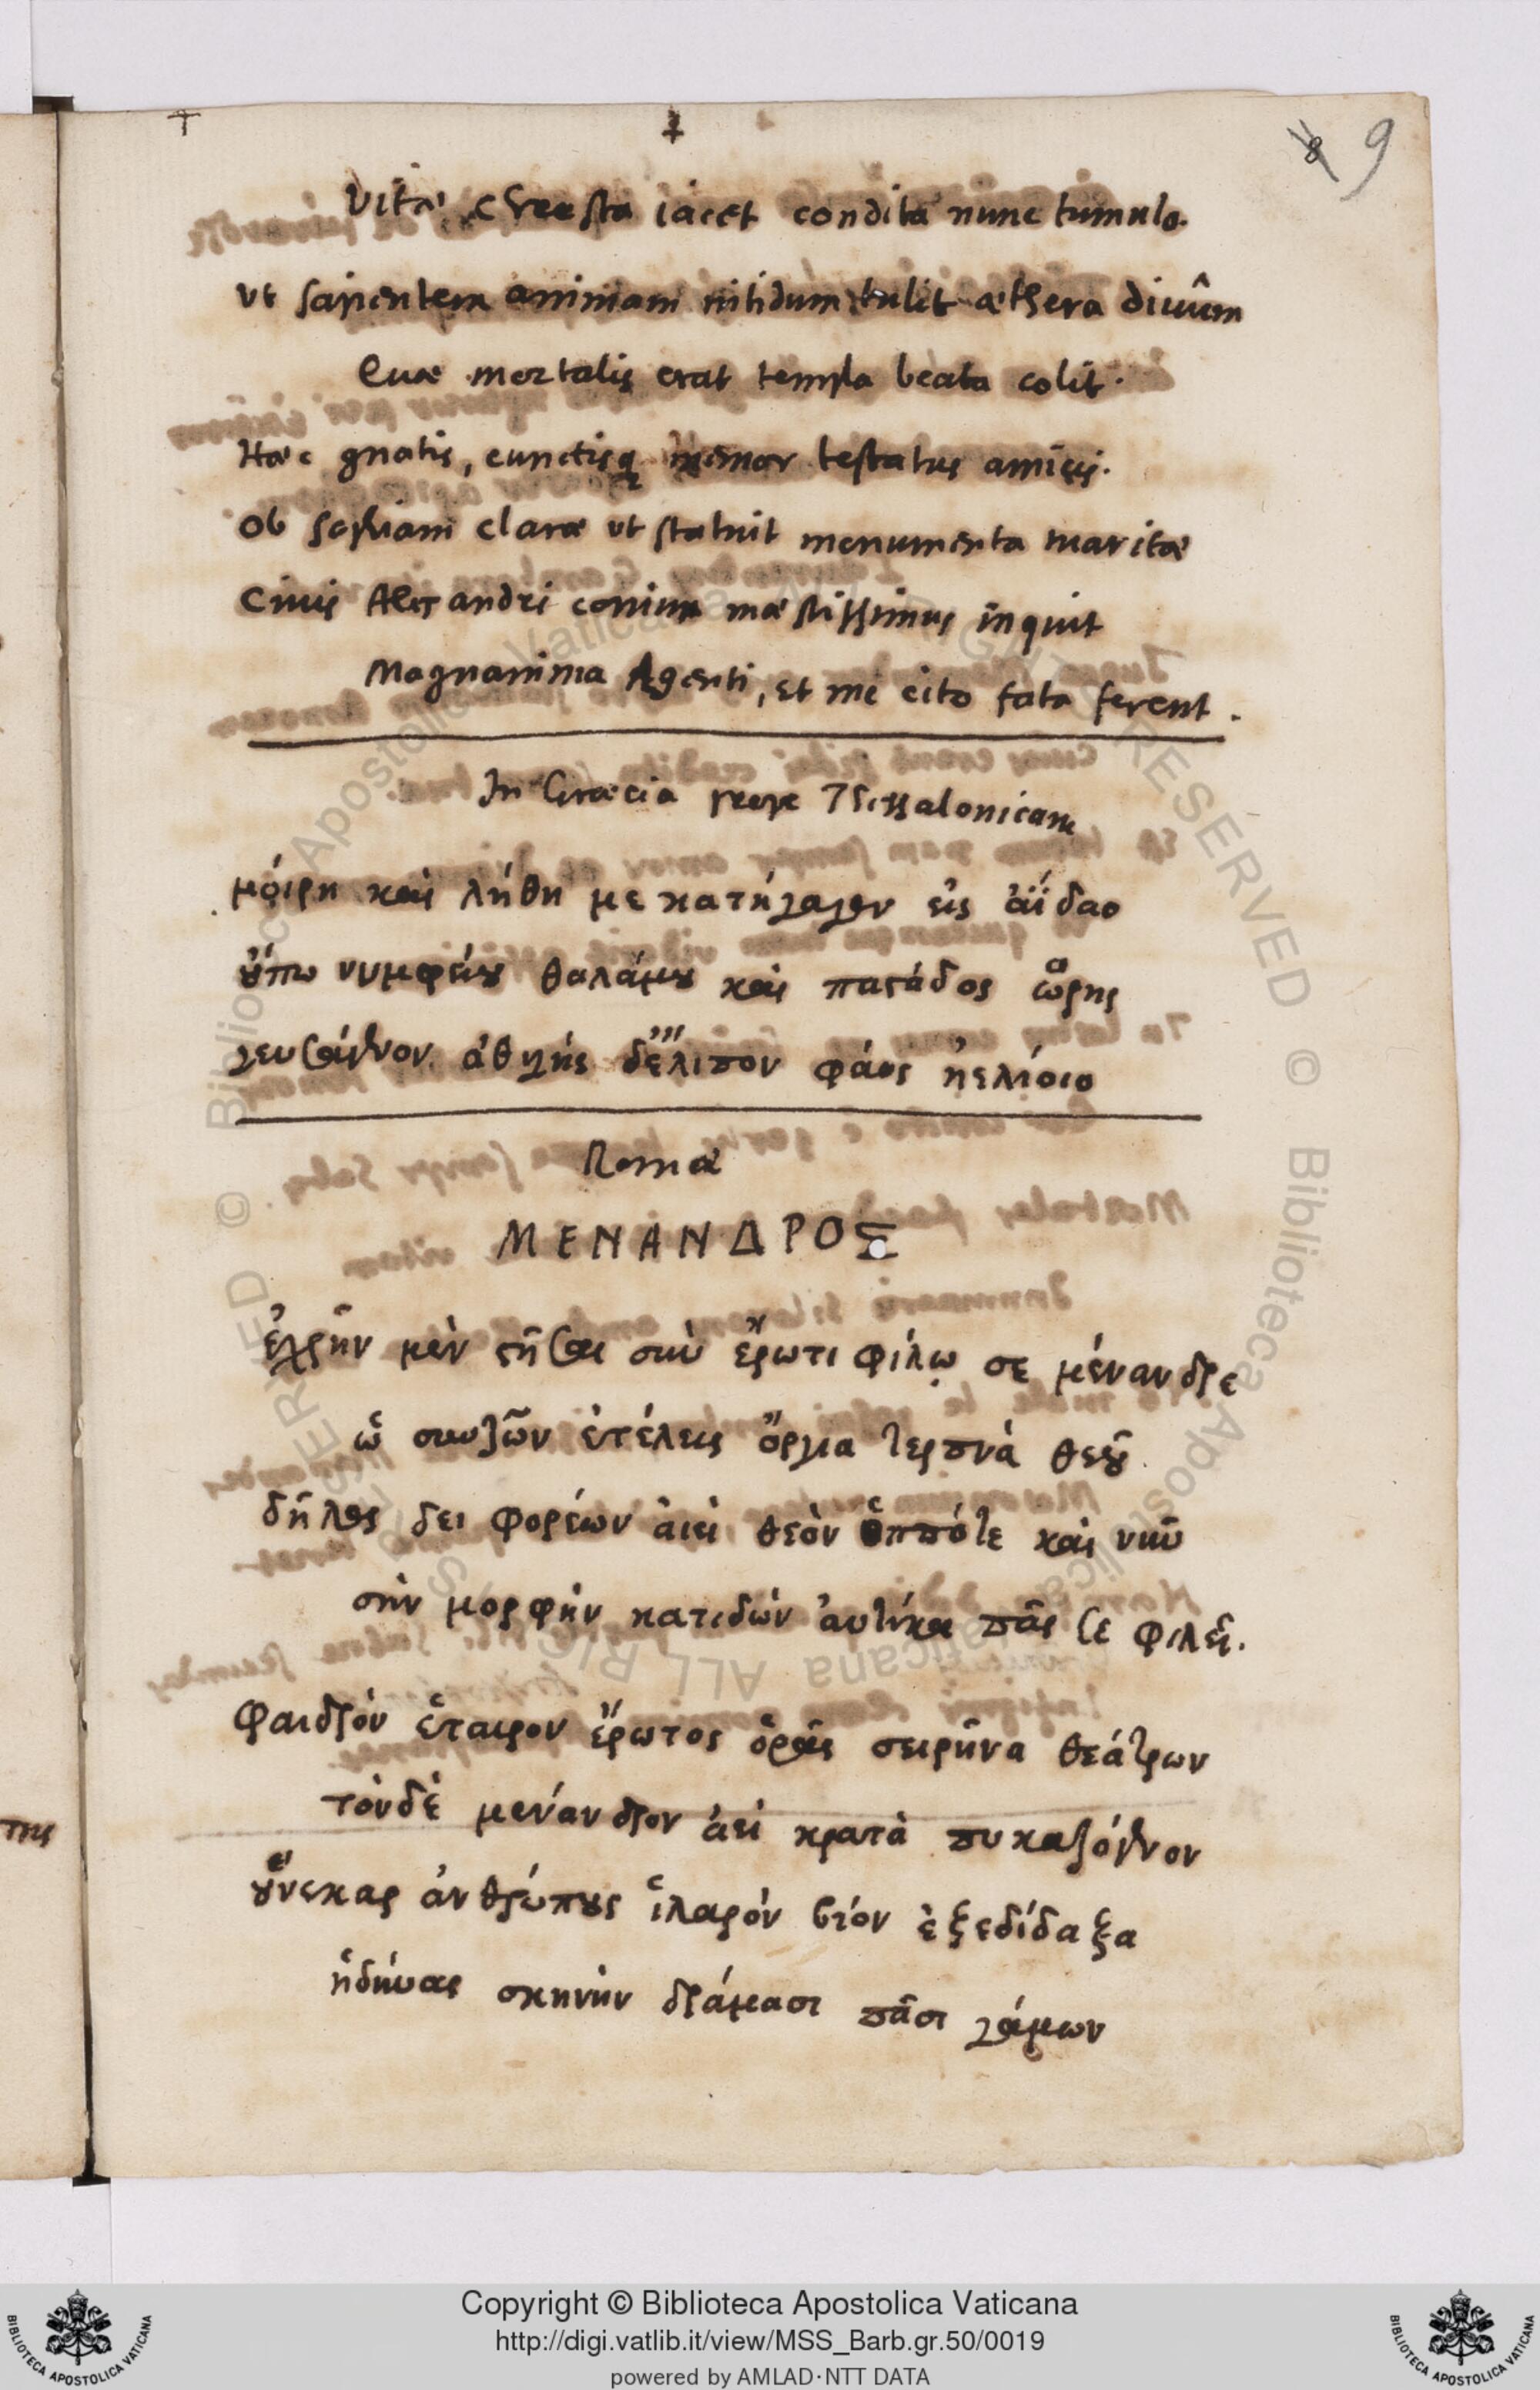 8 9
Vitæ Chresta iacet condita nunc tumulo.
ut sapientem animam nitidum tulit æthera diuûm
Quæ mortalis erat templa beata colit.
Hæc gnatis, cunctisq memor testatus amicis.
Ob sophiam claræ ut statuit monumenta maritæ
Ciuis Alexandri coniux mæstissimus inquit
Magnanima Agenti, et me cito fata ferent.
In Græcia prope Thessalonicam
μοίρη καὶ λήθη με κατήγαγον εἰς ἀΐδαο
οὔπω νυμφείου θαλάμου καὶ παστάδος ὥρης
γευσάμενον ἀθλῆς δὲ λίπον φάος ἠελίοιο
Romæ
ΜΕΝΑΝΔΡΟΣ
ἐχρῆν μὲν στῆσαι σὺν ἔρωτι φίλῳ σε μένανδρε
ᾧ συνζῶν ἐτέλεις ὄργια τερπνὰ θεοῦ
δῆλος δει φορέων αἰεὶ θεὸν ὁππότε καὶ νῦν
σὴν μορφὴν κατιδὼν αὐτίκα πᾶς σε φιλεῖ.
Φαιδρὸν ἑταῖρον ἔρωτος ὁρᾷς σειρῆνα θεάτρων
τόνδε μένανδρον ἀεὶ κρατὰ πυκαζόμενον
οὕνεκ ἄρ ἀνθρώπους ἱλαρὸν βίον ἐξεδίδαξα
ἡδύνας σκηνὴν δράμασι πᾶσι γάμων
της
Copyright © Biblioteca Apostolica Vaticana
http://digi.vatlib.it/view/MSS_Barb.gr.50/0019
powered by AMLAD·NTT DATA